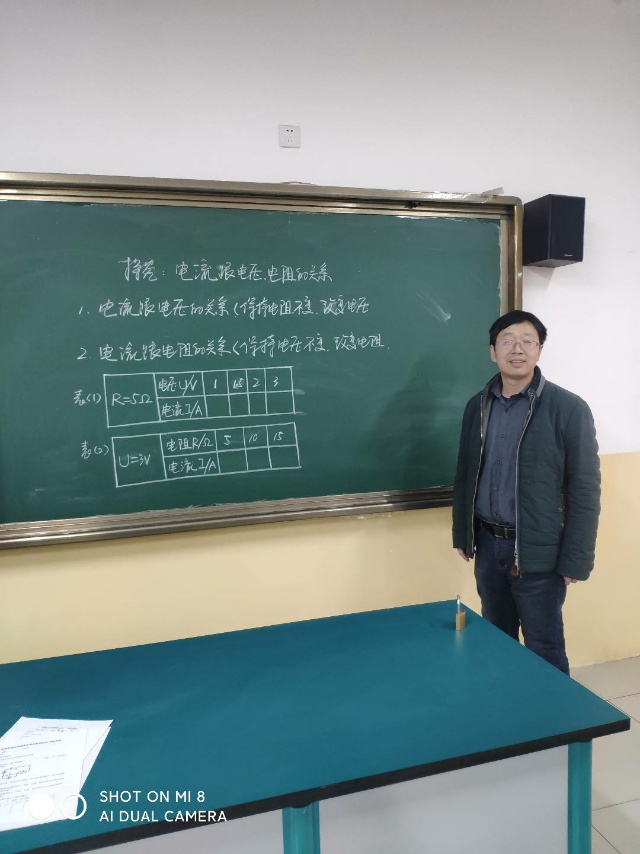 探究：电流跟电压、电阻的关系
1. 电流跟电压的关系(保持电阻不变，改变电压
2. 电流跟电阻的关系(保持电压不变，改变电阻.
表(1) R=5Ω 电压U/V 1 1.5 2 3
电流I/A
表(2) U=3V 电阻R/Ω 5 10 15
电流I/A
SHOT ON MI 8
AI DUAL CAMERA